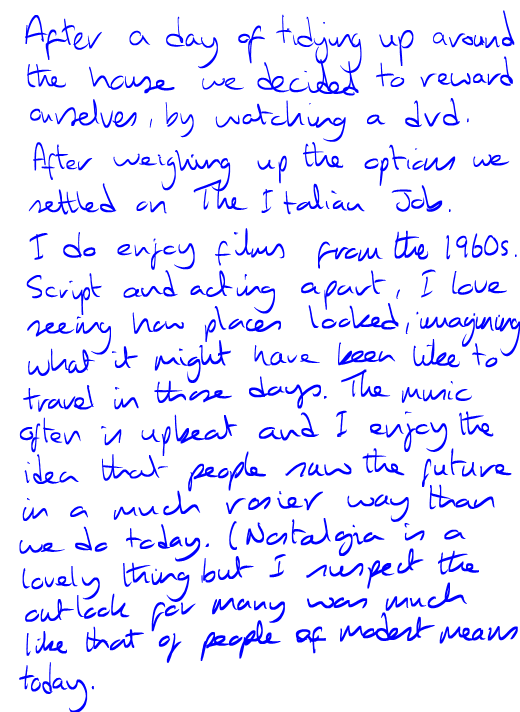 After a day of tidying up around
the house we decided to reward
ourselves, by watching a dvd.
After weighing up the options we
settled on The Italian Job.
I do enjoy films from the 1960s.
Script and acting apart, I love
seeing how places looked, imagining
what it might have been like to
travel in those days. The music
often is upbeat and I enjoy the
idea that people saw the future
in a much rosier way than
we do today. (Nostalgia is a
lovely thing but I suspect the
outlook for many was much
like that of people of modest means
today.